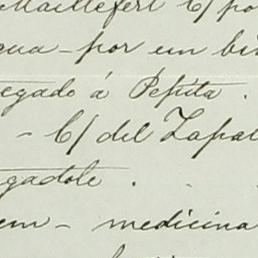 Maillefert C/ po
gua - por un bi
egado á Pepita.
- C/ del Zapat
gadote.
em - medicina